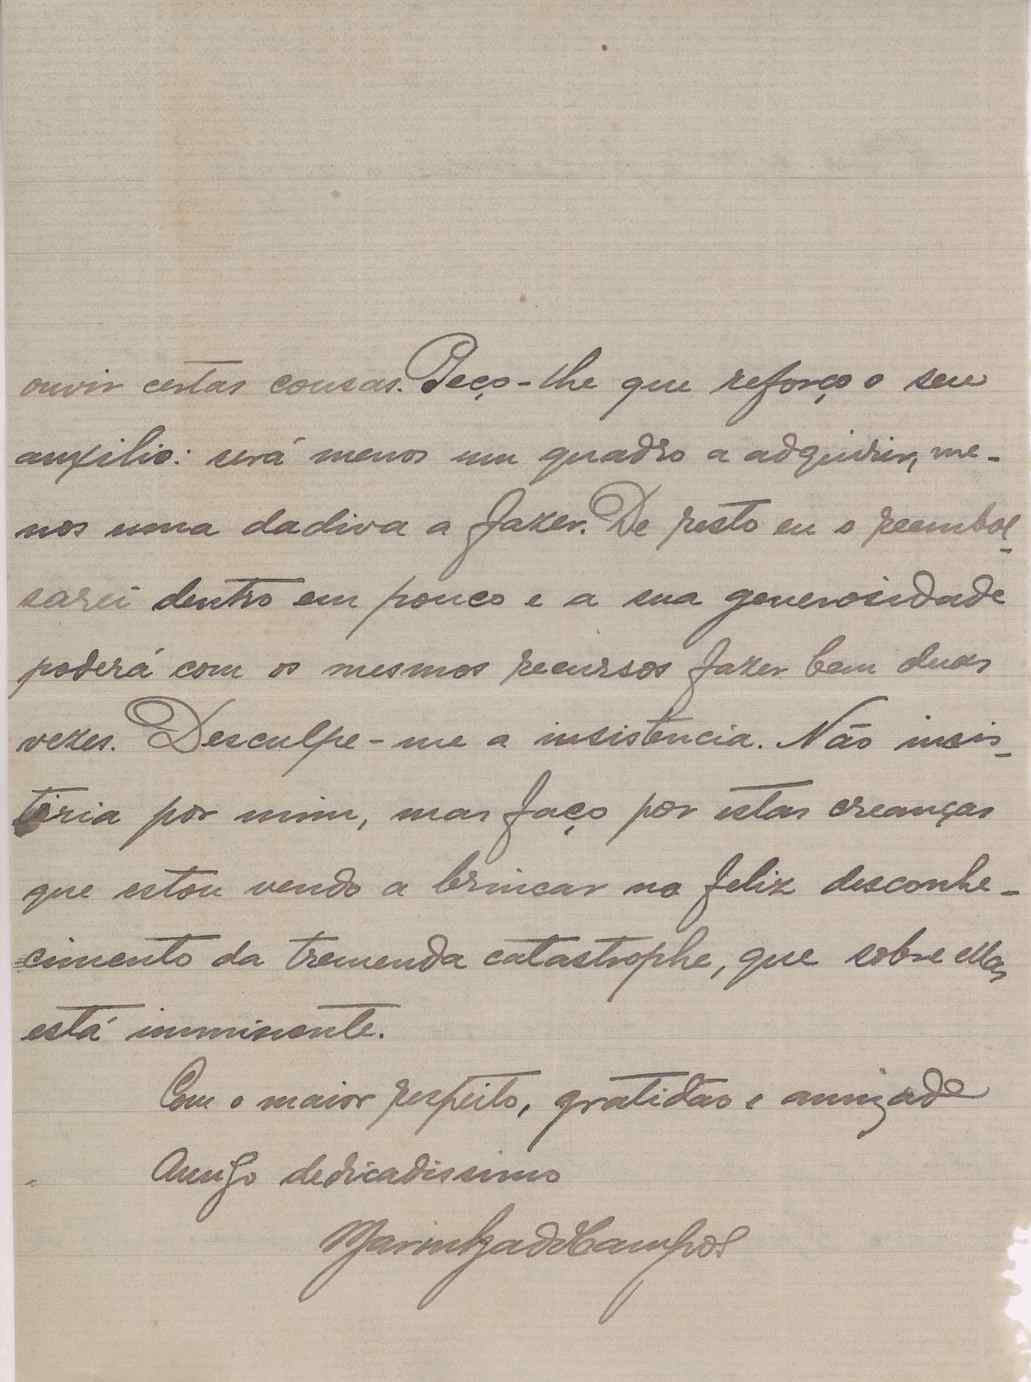 ouvir certas cousas. Peço-lhe que reforço o seu
auxilio: será menos um quadro a adquirir, me-
nos uma dadiva a fazer. De resto eu o reembol-
sarei dentro em pouco e a sua generosidade
poderá com os mesmos recursos fazer bem duas
vezes. Desculpe-me a insistencia. Não insis-
tiria por mim, mas faço por estas creanças
que estou vendo a brincar no feliz desconhe-
cimento da tremenda catastrophe, que sobre ellas
está imminente.
Com o maior respeito, gratidão e amizade
Amigo dedicadissimo
Marinha de Campos